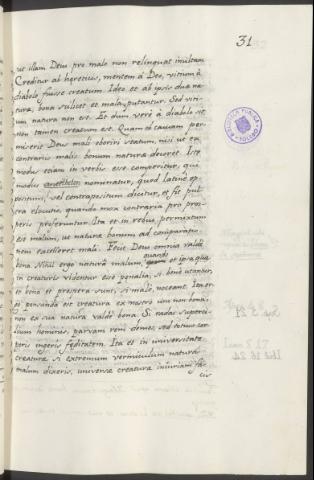 31
ut illam Deus pro malo non relinquat inultam
Creditur ab hęreticis, mentem à Deo, vitium à
diabolo fuisse creatum. Ideo et ab ipsis duæ na-
turæ, bona scilicet et mala, putantur. Sed viti-
um natura non est. Et dum verè à diabolo sit
non tamen creatum est. Quam ob causam per-
miserit Deus mali oboriri statum, nisi ut ex
contrariis malis bonum naturæ decoret. Iste
modus etiam in verbis esse comperitur, qui
modus antitheton nominatur, quod latinè op-
positum, vel contrapositum dicitur, et fit pul-
cra elocutio, quando mox contraria pro pros-
peris proferuntur. Ita et in rebus permixtum
est malum, ut naturæ bonum ad comparatio-
nem excelleret mali. Fecit Deus omnia valdè
bona. Nihil ergo naturâ malum, quando et ipsa quæ
in creaturis videntur esse pœnalia, si benè utantur,
et bona et prospera sunt, si malè, nocent. Ita er-
go pensanda est creatura ex nostro usu non bona,
non ex sua natura valdè bona. Si radas superci-
lium hominis, parvam rem demes, sed totius cor-
poris ingeris fęditatem. Ita et in universitate
creaturæ si extremum vermiculum naturâ
malum dixeris, universæ creaturæ iniuriam fa-
cis